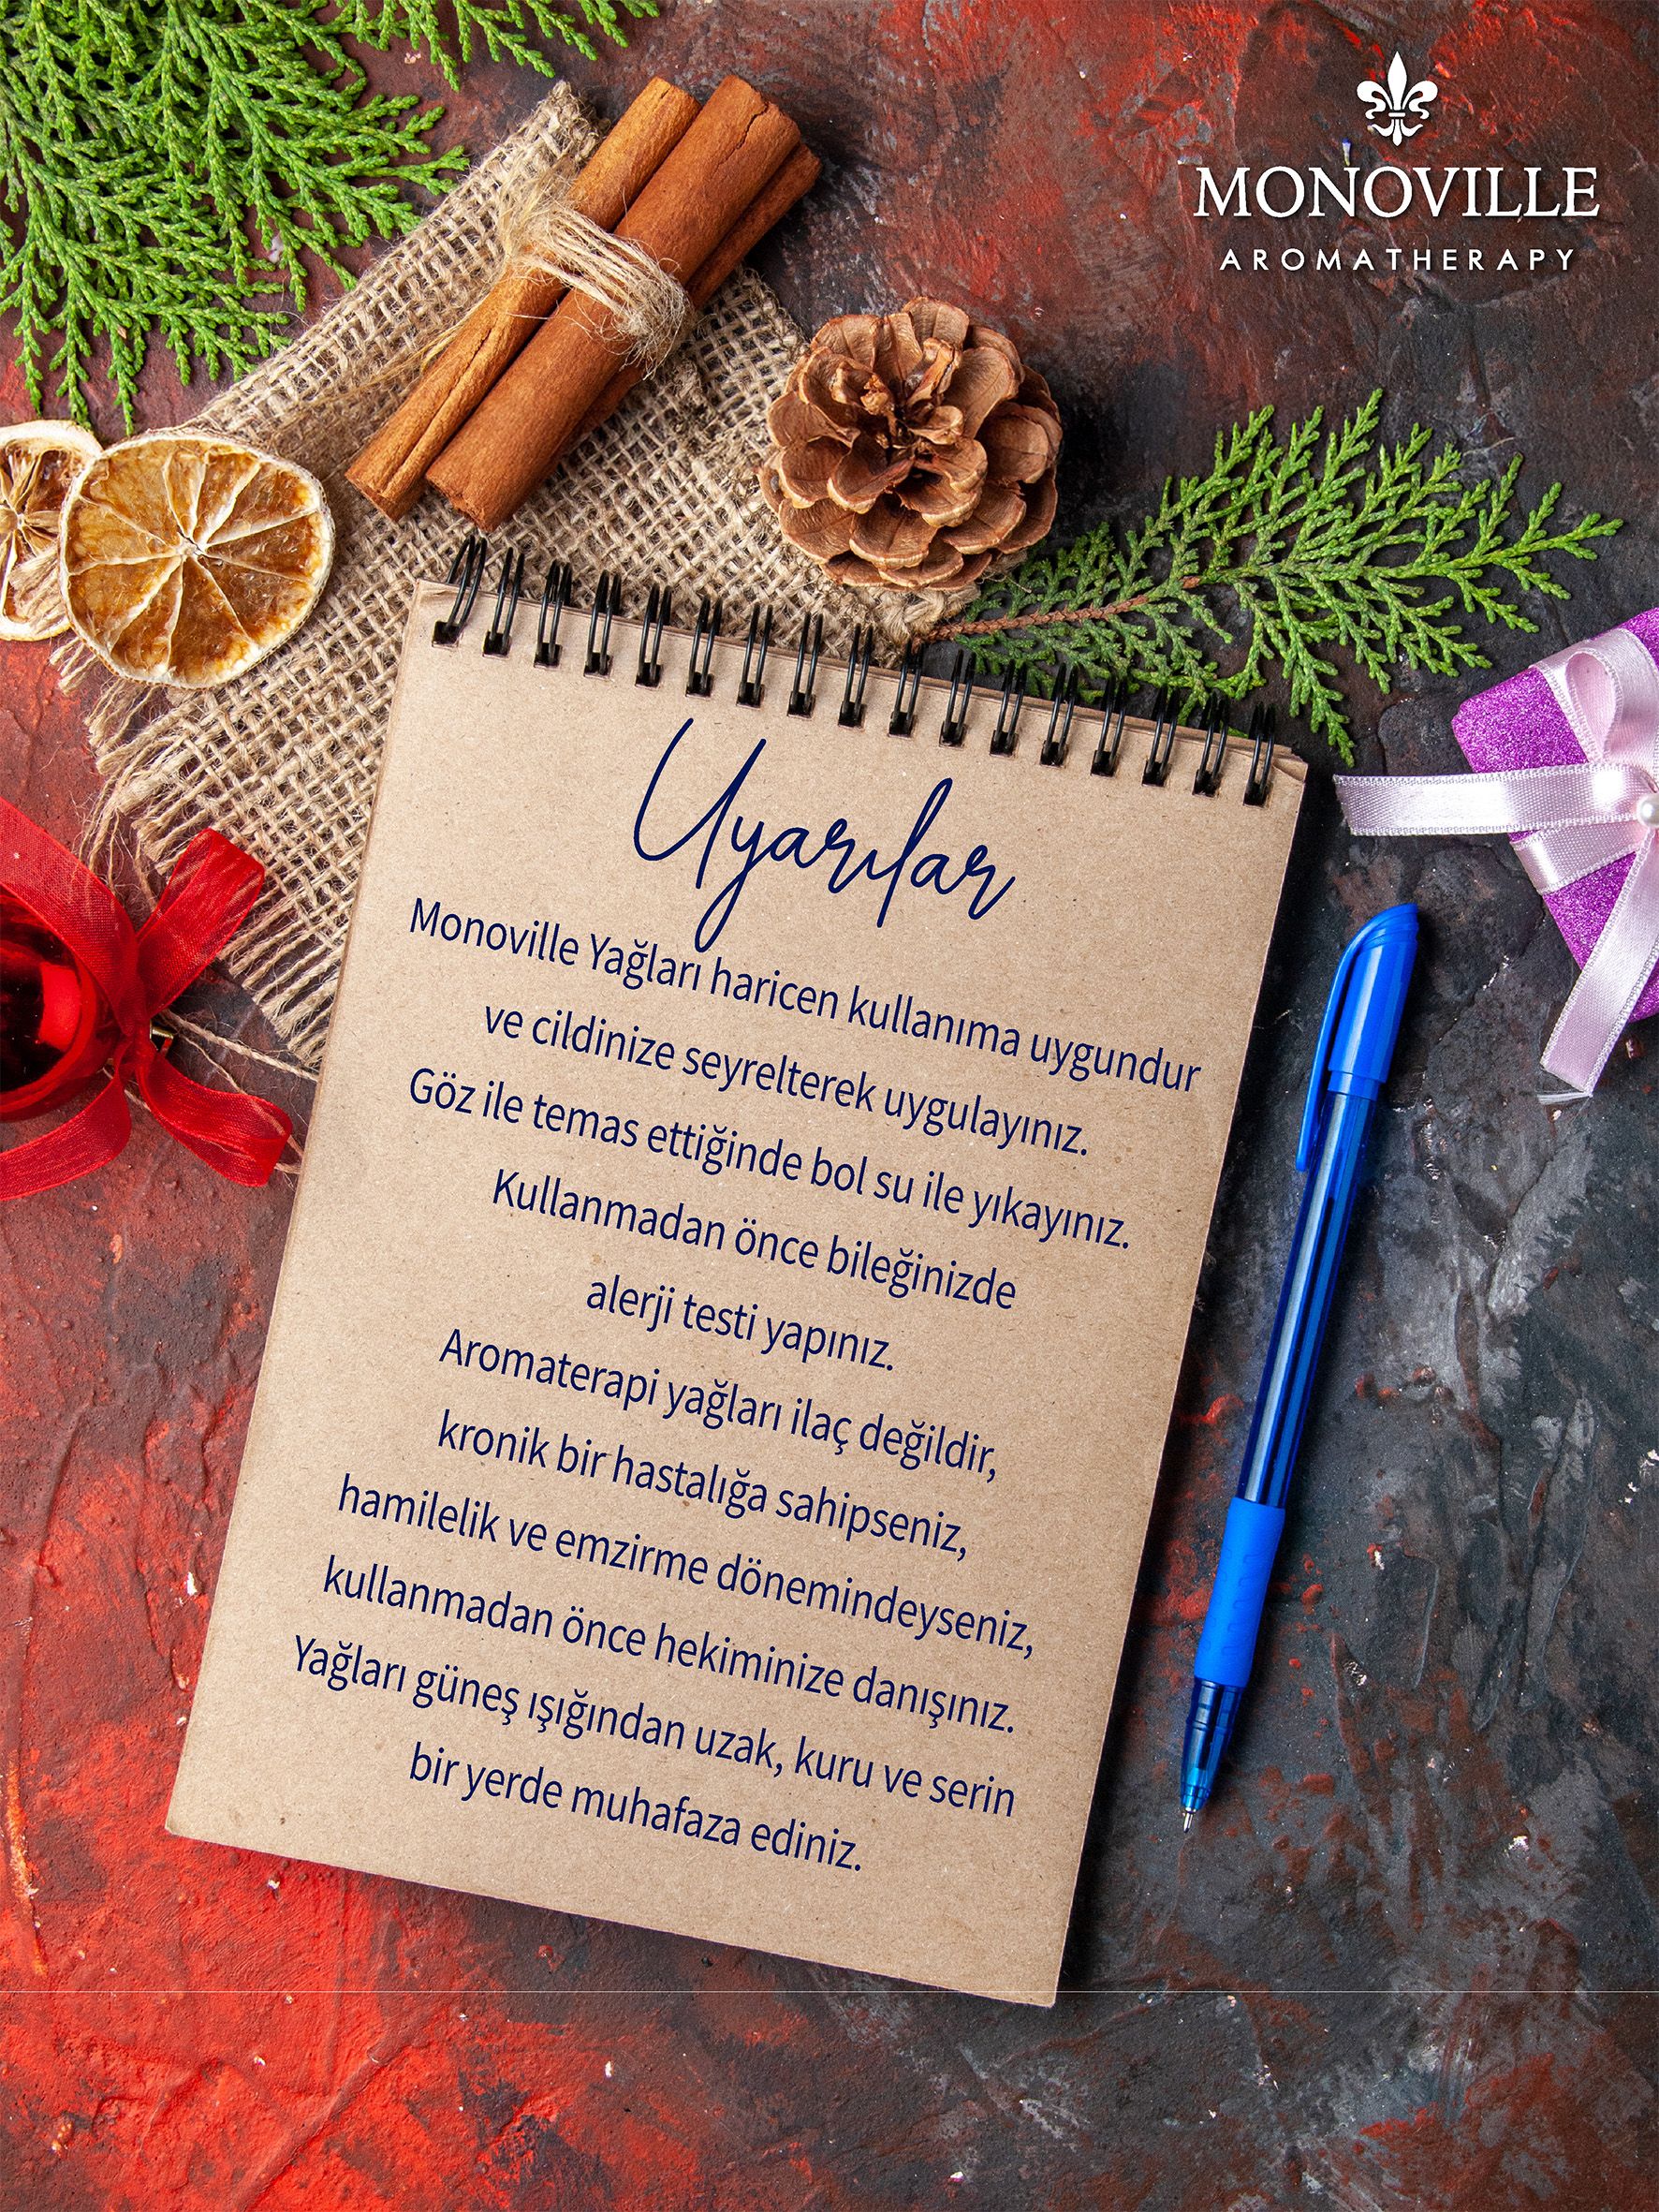 MONOVILLE
AROMATHERAPY
Uyarılar
Monoville Yağları haricen kullanıma uygundur
ve cildinize seyrelterek uygulayınız.
Göz ile temas ettiğinde bol su ile yıkayınız.
Kullanmadan önce bileğinizde
alerji testi yapınız.
Aromaterapi yağları ilaç değildir,
kronik bir hastalığa sahipseniz,
hamilelik ve emzirme dönemindeyseniz,
kullanmadan önce hekiminize danışınız.
Yağları güneş ışığından uzak, kuru ve serin
bir yerde muhafaza ediniz.